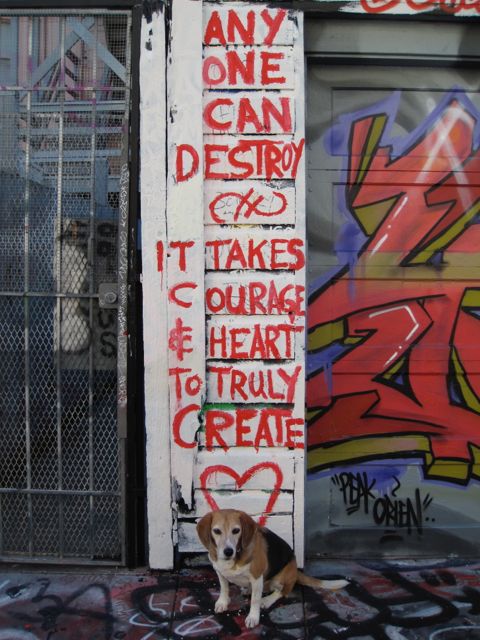 ANY
ONE
CAN
DESTROY
IT TAKES
COURAGE
& HEART
TO TRULY
CREATE
"PEAK
OBIEN"